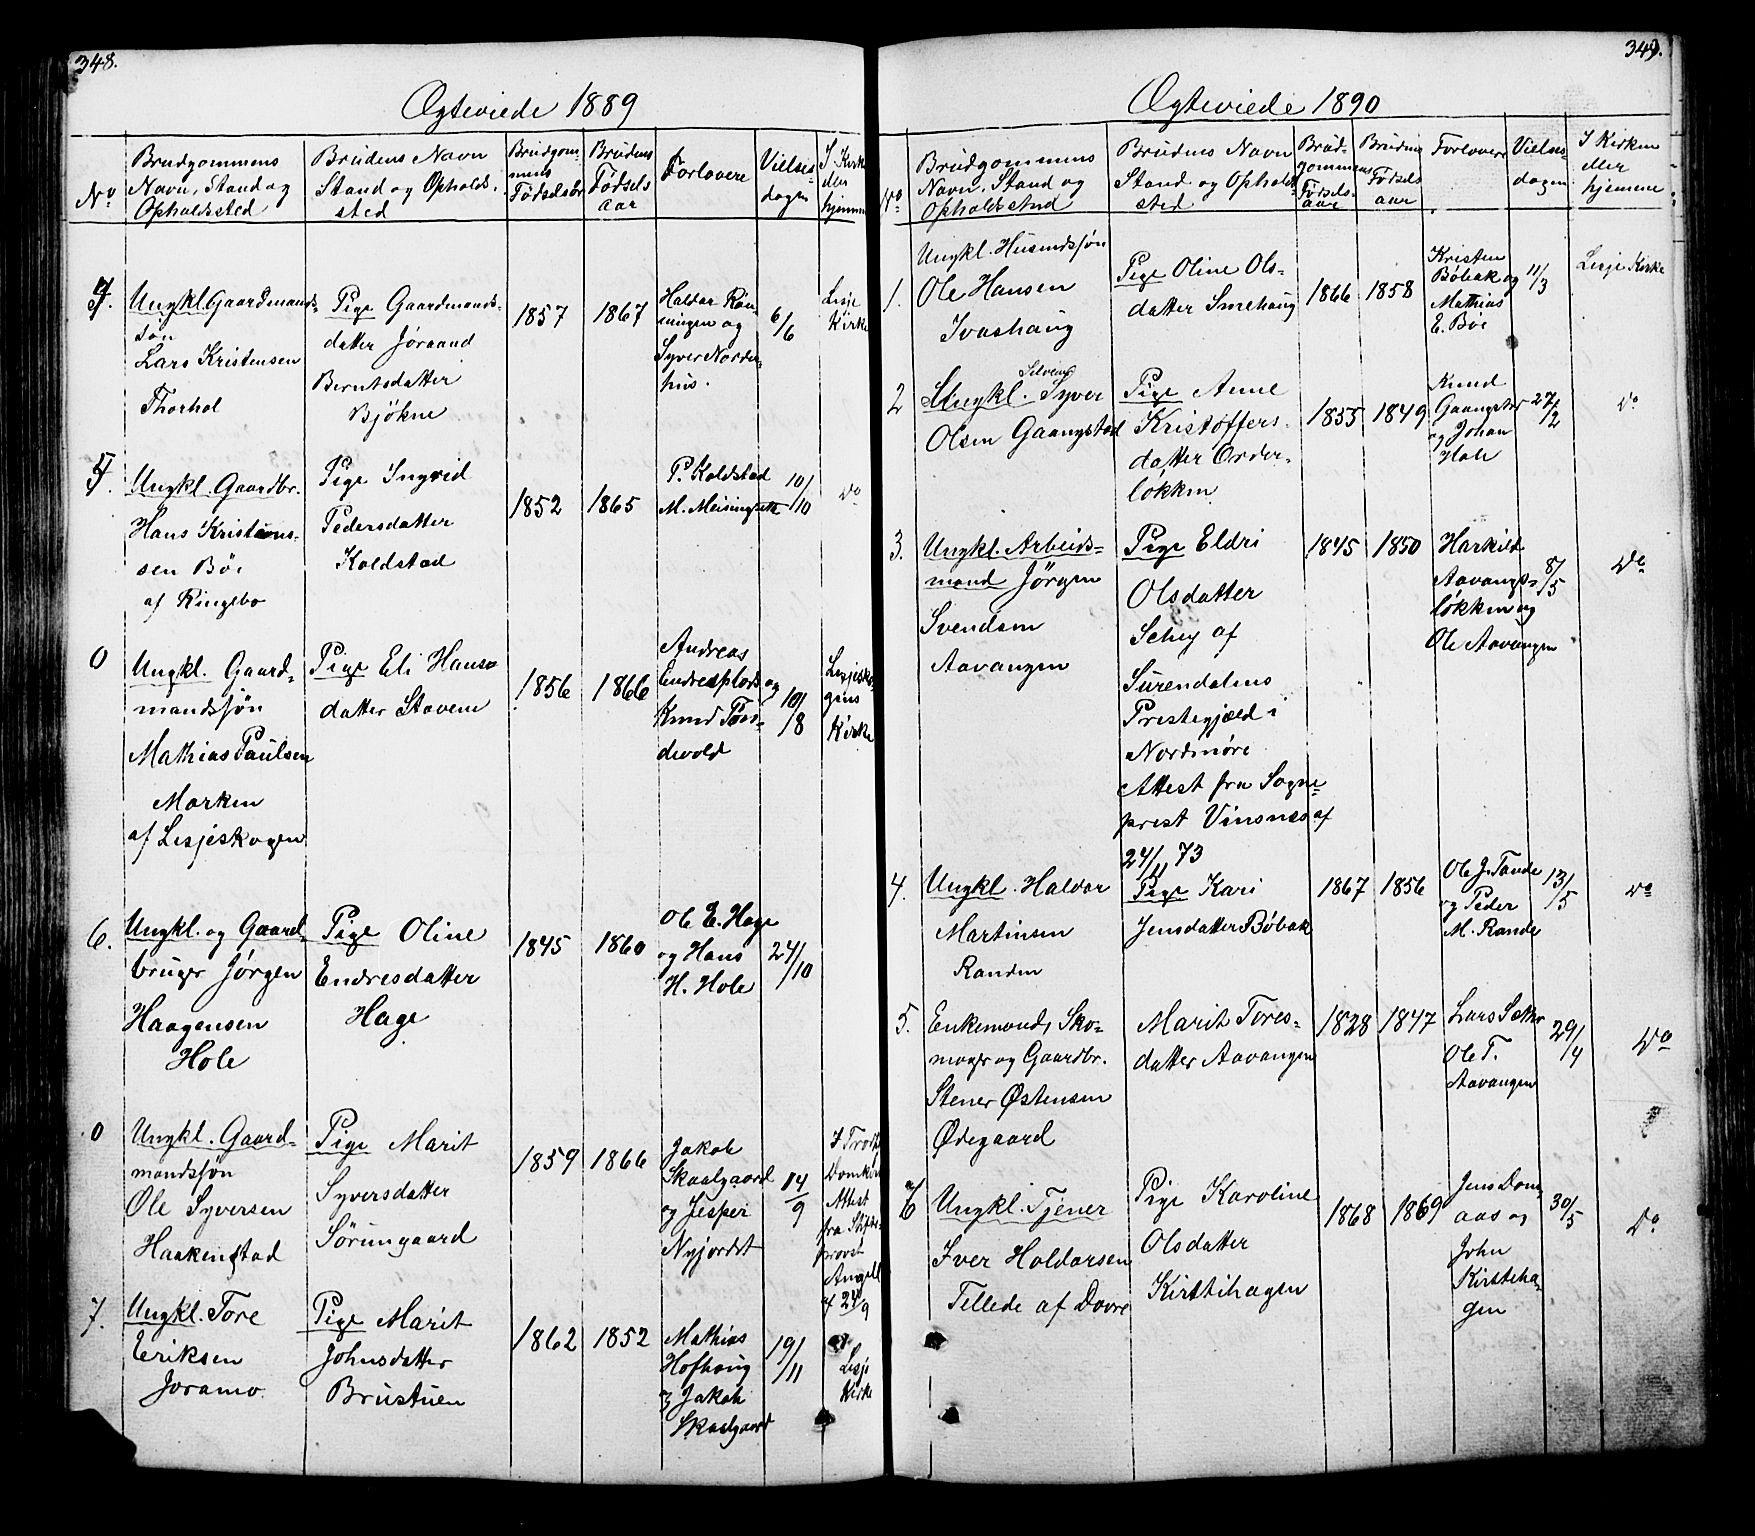 348.
Ægteviede 1889
No
Brudgommens
Navn, Stand og
Opholdssted
Brudens Navn
Stand og Opholds-
sted
Brudgom-
mens
Fødselsår
Brudens
Fødsels
aar
Forlovere
Vielses-
dagen
I Kirke
eller
hjemme
4.
Ungkl. Gaardmands-
søn
Lars Kristensen
Thorhol
Pige Gaardmands-
datter Jøraand
Berntsdatter
Bjøkne
1857
1867
Haldor Røn-
ningen og
Syver Norder-
hus.
6/6
Lesje
Kirke
5.
Ungkl. Gaardbr.
Hans Kristians-
sen Bøe
af Ringebo
Pige Ingrid
Pedersdatter
Koldstad
1852
1865
P. Koldstad
M. Meisingseth
10/10
Do
0
Ungkl. Gaard-
mandssøn
Mathias Paulsen
Morken
af Lesjeskogen
Pige Eli Hans-
datter Stavem
1856
1866
Andreas
Endresplads og
Knud Tor-
devold
10/8
Lesjesko-
gens
Kirke
6.
Ungkl. og Gaard-
bruger Jørgen
Haagensen
Hole
Pige Oline
Endresdatter
Hage
1845
1860
Ole E. Hage
og Hans
H. Hole
24/10
0
Ungkl. Gaard-
mandssøn
Ole Syversen
Haakenstad
Pige Marit
Syversdatter
Sørumgaard
1859
1866
Jakob
Skaalgaard
og Jesper
Nyjordet
14/9
I Trodhj
Domkirke
Attest
fra Stifts-
provst
Angell
af 24/9
7.
Ungkl. Tore
Eriksen
Joramo.
Pige Marit
Johnsdatter
Brustuen
1862
1852
Mathias
Hofhaug
og Jakob
Skaalgaard
19/11
Lesje
Kirke
349.
Ægteviede 1890
No
Brudgommens
Navn, Stand og
Opholdssted
Brudens Navn
Stand og Opholds-
sted
Brud-
gommens
Fødsels-
aar
Brudens
Fødsels
aar
Forlovere
Vielses-
dagen
I Kirken
eller
hjemme
1.
Ungkl. Husmdssøn
Ole Hansen
Ivashaug
Pige Oline Ols-
datter Smehaug
1866
1858
Kristen
Bøbak og
Mathias
E. Bøe
11/3
Lesje Kirke
2
Ungkl. Syver
Olsen Gaangstad
Pige Anne
Kristoffers-
datter Order-
løkken
1855
1849
Knud
Gaangstad
og Johan
Hole
27/2
Do
3.
Ungkl. Arbeids-
mand Jörgen
Svendsen
Aavangen
Pige Eldri
Olsdatter
Schey af
Surendalens
Prestegjæld i
Nordmøre
Attest fra Sogne-
prest Vinsnes af
24/11 73
1845
1850
Harkild
Aavangs-
løkken og
Ole Aavangen
8/5
Do
4.
Ungkl. Haldor
Martinsen
Randen
Pige Kari
Jensdatter Bøbak
1867
1856
Ole J. Tande
og Peder
M. Rande
13/5
Do
5.
Enkemand, Sko-
mager og Gaardbr.
Stener Østensen
Ødegaard
Marit Tores-
datter Aavangen
1828
1847
Lars Sether
Ole T.
Aavangen
29/4
Do
6
Ungkl. Tjener
Iver Haldorsen
Tellede af Dovre
Pige Karoline
Olsdatter
Kirstihagen
1868
1869
Jens Dom-
aas og
John
Kirstiha-
gen
30/5
Do